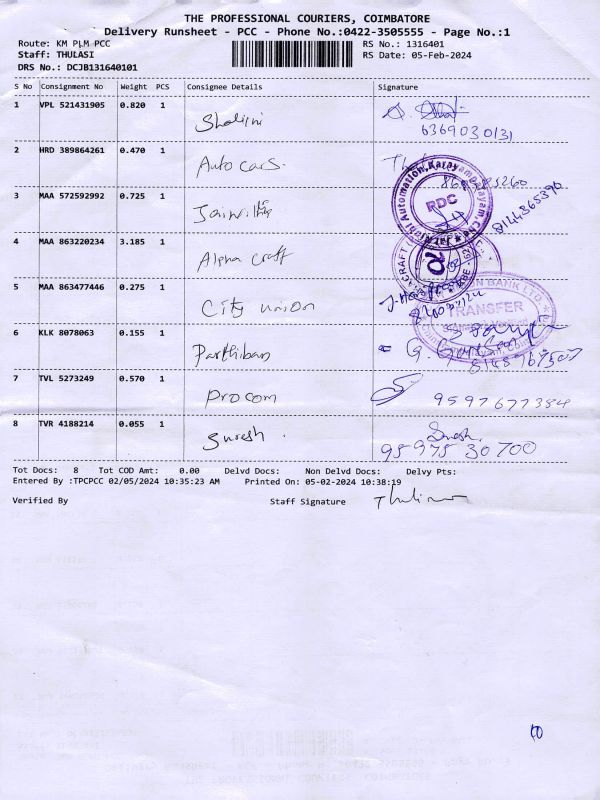 THE PROFESSIONAL COURIERS, COIMBATORE
Delivery Runsheet - PCC - Phone No.:0422-3505555 - Page No.:1
Route: KM PLM PCC
RS No.: 1316401
Staff: THULASI
RS Date: 05-Feb-2024
DRS No.: DCJB131640101
S No Consignment No Weight PCS Consignee Details Signature
1 VPL 521431905 0.820 1 Shalini
6369030131
2 HRD 389864261 0.470 1 Auto cars.
3 MAA 572592992 0.725 1
8144365390
RDC
4 MAA 863220234 3.185 1 Alpha craft
5 MAA 863477446 0.275 1 City union
TRANSFER
6 KLK 8078063 0.155 1 Parthiban
7 TVL 5273249 0.570 1 Procom 9597677384
8 TVR 4188214 0.055 1 Suresh. Suresh
9597530700
Tot Docs: 8 Tot COD Amt: 0.00 Delvd Docs: Non Delvd Docs: Delvy Pts:
Entered By :TPCPCC 02/05/2024 10:35:23 AM Printed On: 05-02-2024 10:38:19
Verified By Staff Signature